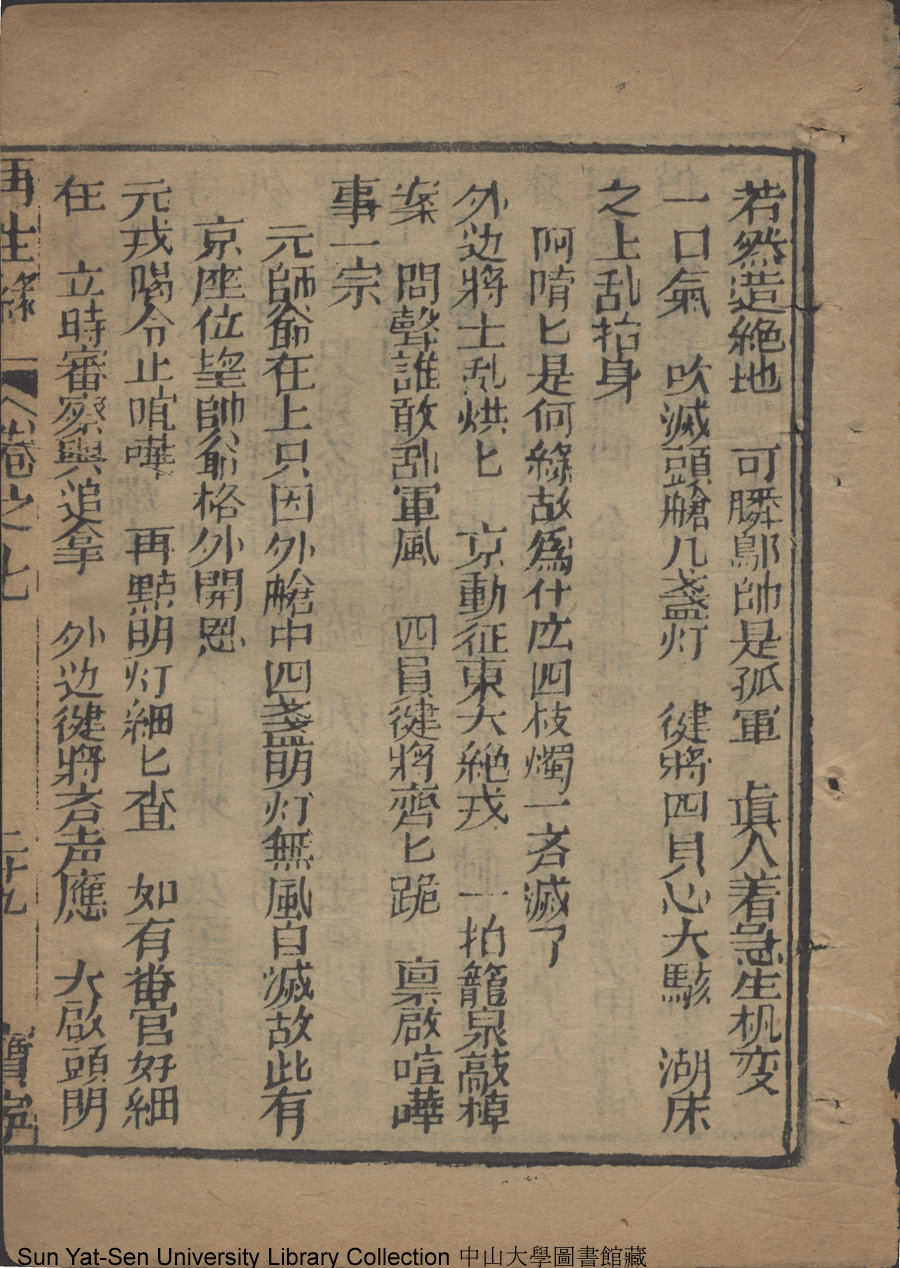 若然造絶地　可隣鄔帥是孤軍　真人着急生机变
一口氣　吹滅頭艙几盞灯　健將四貝心大駭　湖床
之上乱抬身
阿唷匕是何緣故為什庅四枝燭一斉滅了
外边將士乱烘匕　京動征東大絶戎　一拍籠泉敲棹
案　問聲誰敢乱軍風　四員健將齊匕跪　禀啟喧嘩
事一宗
元師爺在上只因外艙中四盞明灯無風自滅故此有
京座位望帥爺格外開恩
元戎喝令止喧嘩　再點明灯細匕查　如有奸細
在　立時審察與追拿　外边健將斉声應　大啟頭明
再生緣　卷之七　二十九
Sun Yat-Sen University Library Collection 中山大學圖書館藏